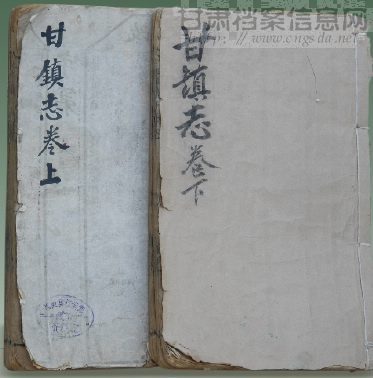 甘肃档案信息网
http://www.cngsda.net
甘鎮志卷上
甘鎮志卷下